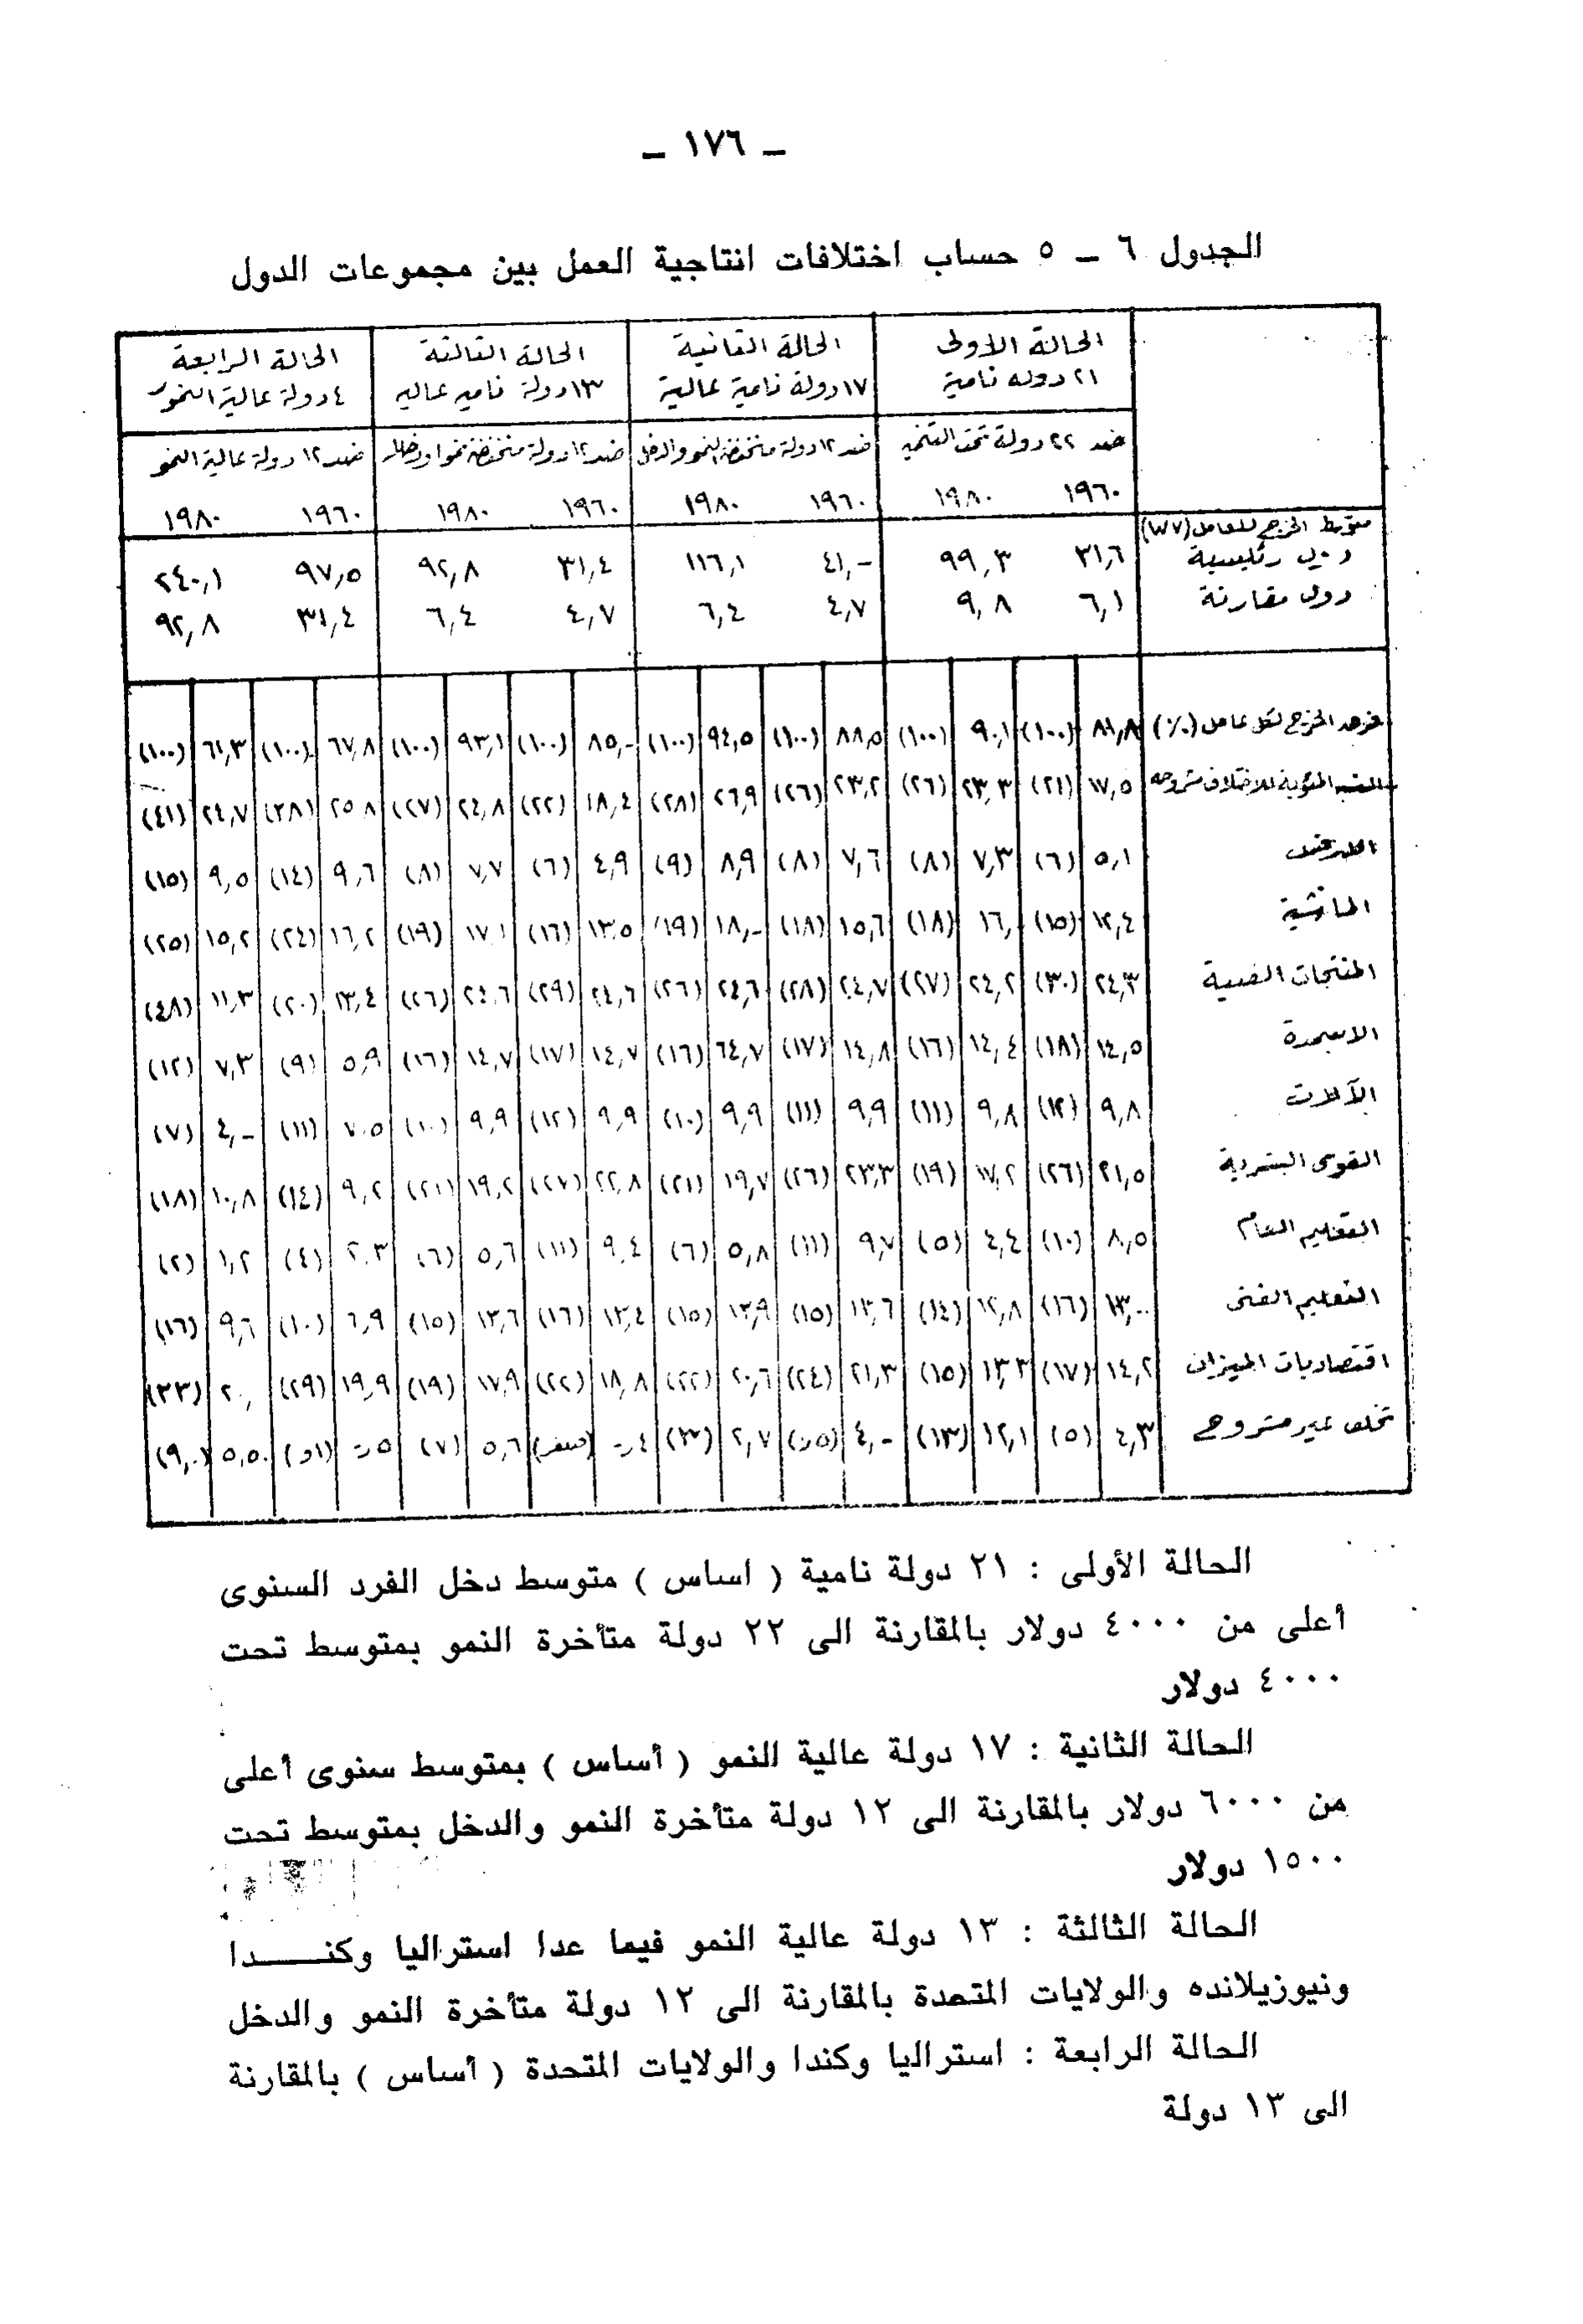 ـ ١٧٦ ـ
الجدول ٦ ـ ٥ حساب اختلافات انتاجية العمل بين مجموعات الدول
الحالة الاولى الحالة الثانية الحالة الثالثة الحالة الرابعة
٢١ دوله نامية ١٧ دولة نامية عالية ١٣ دولة ناميه عاليه ٤ دولة عالية النمو
ضد ٢٢ دولة تحت ضد ١٢ دولة منخفضة النمو والدخل ضد ١٢ دولة منخفضة نموا ضد ١٢ دولة عالية النمو
١٩٦٠ ١٩٨٠ ١٩٦٠ ١٩٨٠ ١٩٦٠ ١٩٨٠ ١٩٦٠ ١٩٨٠
متوسط الخرج للعامل (W٧)
دول رئيسية ٣١,٦ ٩٩,٣ ٤١,- ١١٦,١ ٣١,٤ ٩٢,٨ ٩٧,٥ ٢٤٠,١
دول مقارنة ٦,١ ٩,٨ ٤,٧ ٦,٤ ٤,٧ ٦,٤ ٣١,٤ ٩٢,٨
الخرج لكل عامل (٪) ٨١,٨ (١٠٠) ٩٠,١ (١٠٠) ٨٨,٥ (١٠٠) ٩٤,٥ (١٠٠) ٨٥,- (١٠٠) ٩٣,١ (١٠٠) ٦٧,٨ (١٠٠) ٦١,٣ (١٠٠)
المئوية للاختلاف مشروحه ١٧,٥ (٢١) ٢٣,٣ (٢٦) ٢٣,٢ (٢٦) ٢٦,٩ (٢٨) ١٨,٤ (٢٢) ٢٤,٨ (٢٧) ٢٥٨ (٣٨) ٢٤,٧ (٤١)
٥,١ (٦) ٧,٣ (٨) ٧,٦ (٨) ٨,٩ (٩) ٤,٩ (٦) ٧,٧ (٨) ٩,٦ (١٤) ٩,٥ (١٥)
الماشية ١٢,٤ (١٥) ١٦, (١٨) ١٥,٦ (١٨) ١٨,- (١٩) ١٣,٥ (١٦) ١٧,١ (١٩) ١٦,٢ (٢٤) ١٥,٢ (٢٥)
المنتجات الفنية ٢٤,٣ (٣٠) ٢٤,٢ (٢٧) ٢٤,٧ (٢٨) ٢٤,٦ (٢٦) ٢٤,٦ (٢٩) ٢٤,٦ (٢٦) ١٣,٤ (٢٠) ١١,٣ (٤٨)
الاسمدة ١٤,٥ (١٨) ١٤,٤ (١٦) ١٤,٨ (١٧) ٦٤,٧ (١٦) ١٤,٧ (١٧) ١٤,٧ (١٦) ٥,٩ (٩) ٧,٣ (١٢)
الآلات ٩,٨ (١٢) ٩,٨ (١١) ٩,٩ (١١) ٩,٩ (١٠) ٩,٩ (١٢) ٩,٩ (١٠) ٧,٥ (١١) ٤,- (٧)
القوى البشرية ٢١,٥ (٢٦) ١٧,٢ (١٩) ٢٣,٣ (٢٦) ١٩,٧ (٢١) ٢٢,٨ (٢٧) ١٩,٢ (٢١) ٩,٢ (١٤) ١٠,٨ (١٨)
التعليم العام ٨,٥ (١٠) ٤,٤ (٥) ٩,٧ (١١) ٥,٨ (٦) ٩,٤ (١١) ٥,٦ (٦) ٢,٣ (٤) ١,٢ (٢)
التعليم الفنى ١٣,٠ (١٦) ١٢,٨ (١٤) ١٣,٦ (١٥) ١٣,٩ (١٥) ١٣,٤ (١٦) ١٣,٦ (١٥) ٦,٩ (١٠) ٩,٦ (١٦)
اقتصاديات الميزان ١٤,٢ (١٧) ١٣,٣ (١٥) ٢١,٣ (٢٤) ٢٠,٦ (٢٢) ١٨,٨ (٢٢) ١٧,٩ (١٩) ١٩,٩ (٢٩) ٢٠, (٣٣)
تخلف غير مشروح ٤,٣ (٥) ١٢,١ (١٣) ٤,- ٢,٧ (٣) (صفر) ٥,٦ (٧) ٥,٥ (٩,٠)
الحالة الأولى : ٢١ دولة نامية ( اساس ) متوسط دخل الفرد السنوى
أعلى من ٤٠٠٠ دولار بالمقارنة الى ٢٢ دولة متأخرة النمو بمتوسط تحت
٤٠٠٠ دولار
الحالة الثانية : ١٧ دولة عالية النمو ( أساس ) بمتوسط سنوى أعلى
من ٦٠٠٠ دولار بالمقارنة الى ١٢ دولة متأخرة النمو والدخل بمتوسط تحت
١٥٠٠ دولار
الحالة الثالثة : ١٣ دولة عالية النمو فيما عدا استراليا وكنـــــدا
ونيوزيلانده والولايات المتحدة بالمقارنة الى ١٢ دولة متأخرة النمو والدخل
الحالة الرابعة : استراليا وكندا والولايات المتحدة ( أساس ) بالمقارنة
الى ١٣ دولة